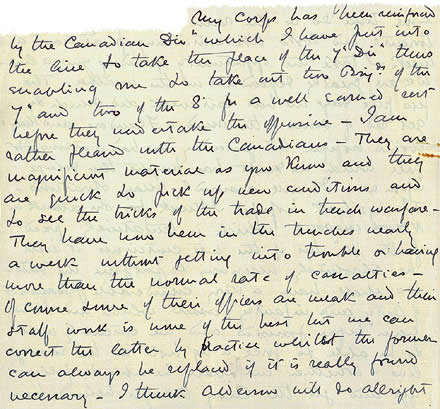 My Corps has been reinforced
by the Canadian Divn which I have put into
the line to take the place of the 7th Divn thus
enabling me to take out two Brigds of the
7th and two of the 8th for a well earned rest
before they undertake the offensive - I am
rather pleased with the Canadians - They are
magnificent material as you know and they
are quick to pick up new conditions and
to see the tricks of the trade in trench warfare -
They have now been in the trenches nearly
a week without getting into trouble or having
more than the normal rate of casualties -
Of course some of their officers are weak and their
staff work is none of the best but we can
correct the latter by practice whilst the former
can always be replaced if it is really found
necessary - I think Alderson will do allright